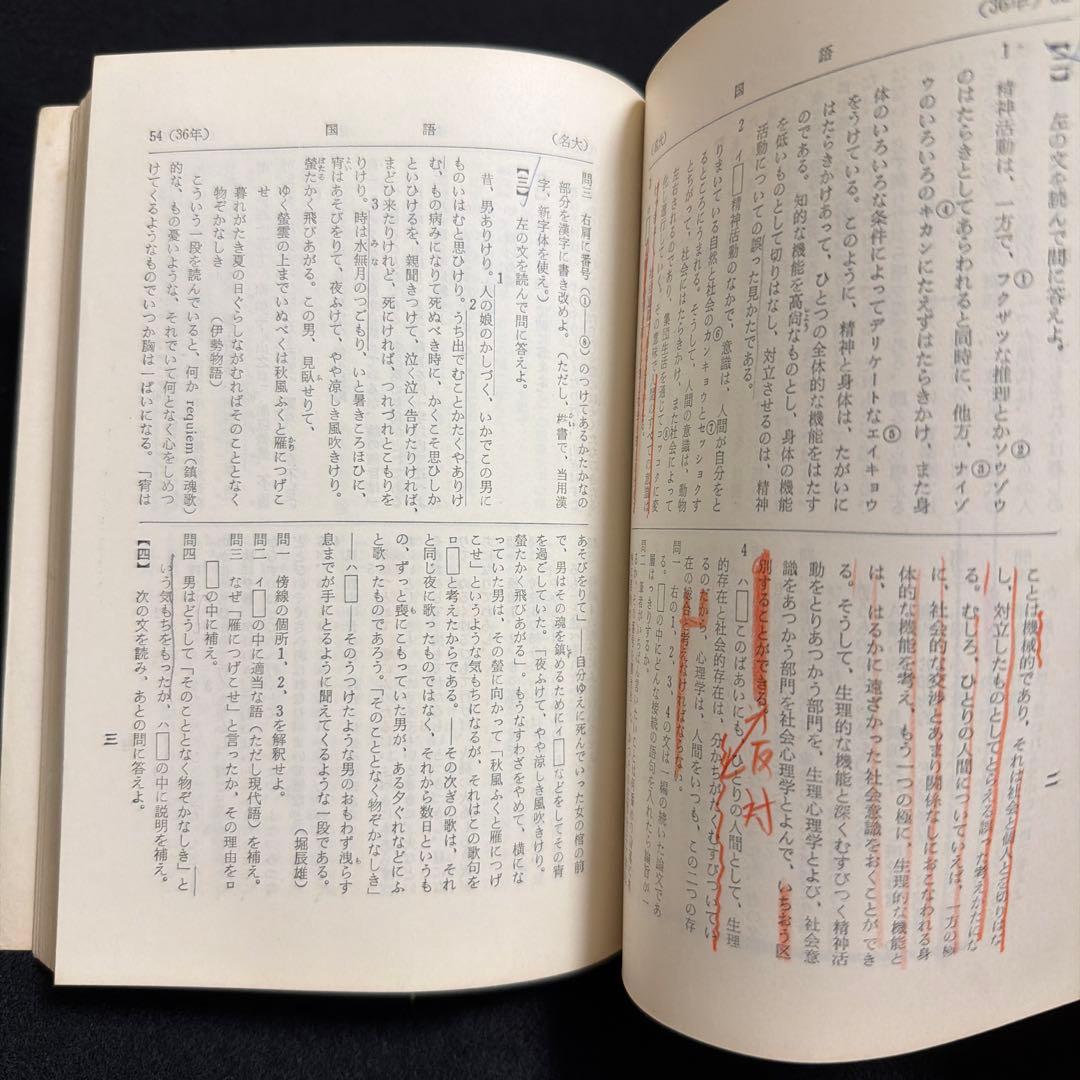 国語
【二】 左の文を読んで問に答えよ。
1 精神活動は、一方で、フクザツな推理とかソウゾウ
のはたらきとしてあらわれると同時に、他方、ナイゾ
ウのいろいろのキカンにたえずはたらきかけ、また身
体のいろいろな条件によってデリケートなエイキョウ
をうけている。このように、精神と身体は、たがいに
はたらきかけあって、ひとつの全体的な機能をはたす
のである。知的な機能を高尚なものとし、身体の機能
を低いものとして切りはなし、対立させるのは、精神
活動についての誤った見かたである。
2 イ□精神活動のなかで、意識は、人間が自分をと
りまいている自然と社会のカンキョウとセッショクす
るところにうまれる。そうして、人間の意識は、動物
左右されるのであり、社会にはたらきかけ、また社会によって
ことは機械的であり、それは社会と個人とを切りはな
し、対立したものとしてとらえる誤った考えかたにな
る。むしろ、ひとりの人間についていえば、一方の極
に、社会的な交渉とあまり関係なしにおこなわれる身
体的な機能を考え、もう一つの極に、生理的な機能と
は、はるかに遠ざかった社会意識をおくことができ
る。そうして、生理的な機能と深くむすびつく精神活
動をとりあつかう部門を、生理心理学とよび、社会意
識をあつかう部門を社会心理学とよんで、いちおう区
別することができる。
4 ハ□このばあいにも、ひとりの人間として、生理
的存在と社会的存在は、分かちがたくむすびついてい
るのだから、心理学は、人間をいつも、この二つの存
在の総合と考えなければならない。
問一 右の1、2、3、4の文は一編の続いた論文であ
る。□の中にどんな接続の語句を入れたら論旨が一
層はっきりするか。
反対
二
54（36年）
国語
（名大）
問三 右肩に番号（①——⑧）のつけてあるかたかなの
部分を漢字に書き改めよ。（ただし、楷書で、当用漢
字、新字体を使え。）
【三】 左の文を読んで問に答えよ。
昔、男ありけり。人の娘のかしづく、いかでこの男に
ものいはむと思ひけり。うち出でむことかたくやありけ
む、もの病みになりて死ぬべき時に、かくこそ思ひしか
といひけるを、親聞きつけて、泣く泣く告げたりければ、
まどひ来たりけれど、死にければ、つれづれとこもりを
りけり。時は水無月のつごもり、いと暑きころほひに、
宵はあそびをりて、夜ふけて、やや涼しき風吹きけり。
螢たかく飛びあがる。この男、見臥せりて、
ゆく螢雲の上までいぬべくは秋風ふくと雁につげこ
せ
暮れがたき夏の日ぐらしながむればそのこととなく
物ぞかなしき　（伊勢物語）
こういう一段を読んでいると、何か requiem（鎮魂歌）
的な、もの憂いような、それでいて何となく心をしめつ
けてくるようなものでいつか胸は一ぱいになる。「宵は
あそびをりて」——自分ゆえに死んでいった女の棺の前
で、男はその魂を鎮めるためにイ□などをしてその宵
を過ごしていた。「夜ふけて、やや涼しき風吹きけり。
螢たかく飛びあがる」。もうなすわざをやめて、横にな
っていた男は、その螢に向かって「秋風ふくと雁につげ
こせ」というような気もちになるが、それはこの歌句を
ロ□と考えたからである。——その次ぎの歌は、それ
と同じ夜に歌ったものではなく、それから数日というも
の、ずっと喪にこもっていた男が、ある夕ぐれなどにふ
と歌ったものであろう。「そのこととなく物ぞかなしき」
——ハ□——そのうつけたような男のおもわず洩らす
息までが手にとるように聞えてくるような一段である。
（堀辰雄）
問一 傍線の個所1、2、3を解釈せよ。
問二 イ□の中に適当な語（ただし現代語）を補え。
問三 なぜ「雁につげこせ」と言ったか、その理由をロ
□の中に補え。
問四 男はどうして「そのこととなく物ぞかなしき」と
いう気もちをもったか、ハ□の中に説明を補え。
【四】 次の文を読み、あとの問に答えよ。
三